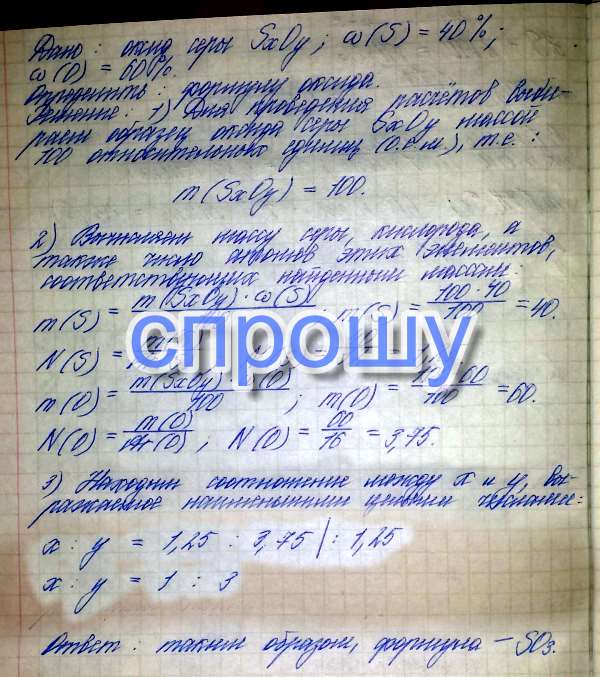 Дано: оксид серы SxOy; ω(S) = 40%;
ω(O) = 60%.
Определить: формулу оксида.
Решение: 1) Для проведения расчётов выби-
раем образец оксида серы SxOy массой
100 относительных единиц (о.е.м.), т.е.:
m(SxOy) = 100.
2) Вычисляем массу серы, кислорода, а
также число атомов этих элементов,
соответствующих найденным массам:
m(S) = m(SxOy)·ω(S) ; m(S) = 100·40/100 = 40.
спрошу
N(S) =
m(O) = m(SxOy) (O)/100 ; m(O) = 60/100 = 60.
N(O) = m(O)/Ar(O) ; N(O) = 60/16 = 3,75.
3) Находим соотношение между x и y, вы-
ражаемое наименьшими целыми числами:
x : y = 1,25 : 3,75 | : 1,25
x : y = 1 : 3
Ответ: таким образом, формула – SO₃.